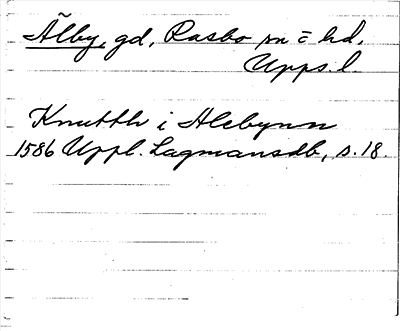 Älby, gd, Rasbo sn o hd,
Upps. l.
Knutth i Alebynn
1586 Uppl. Lagmansdb, s. 18.